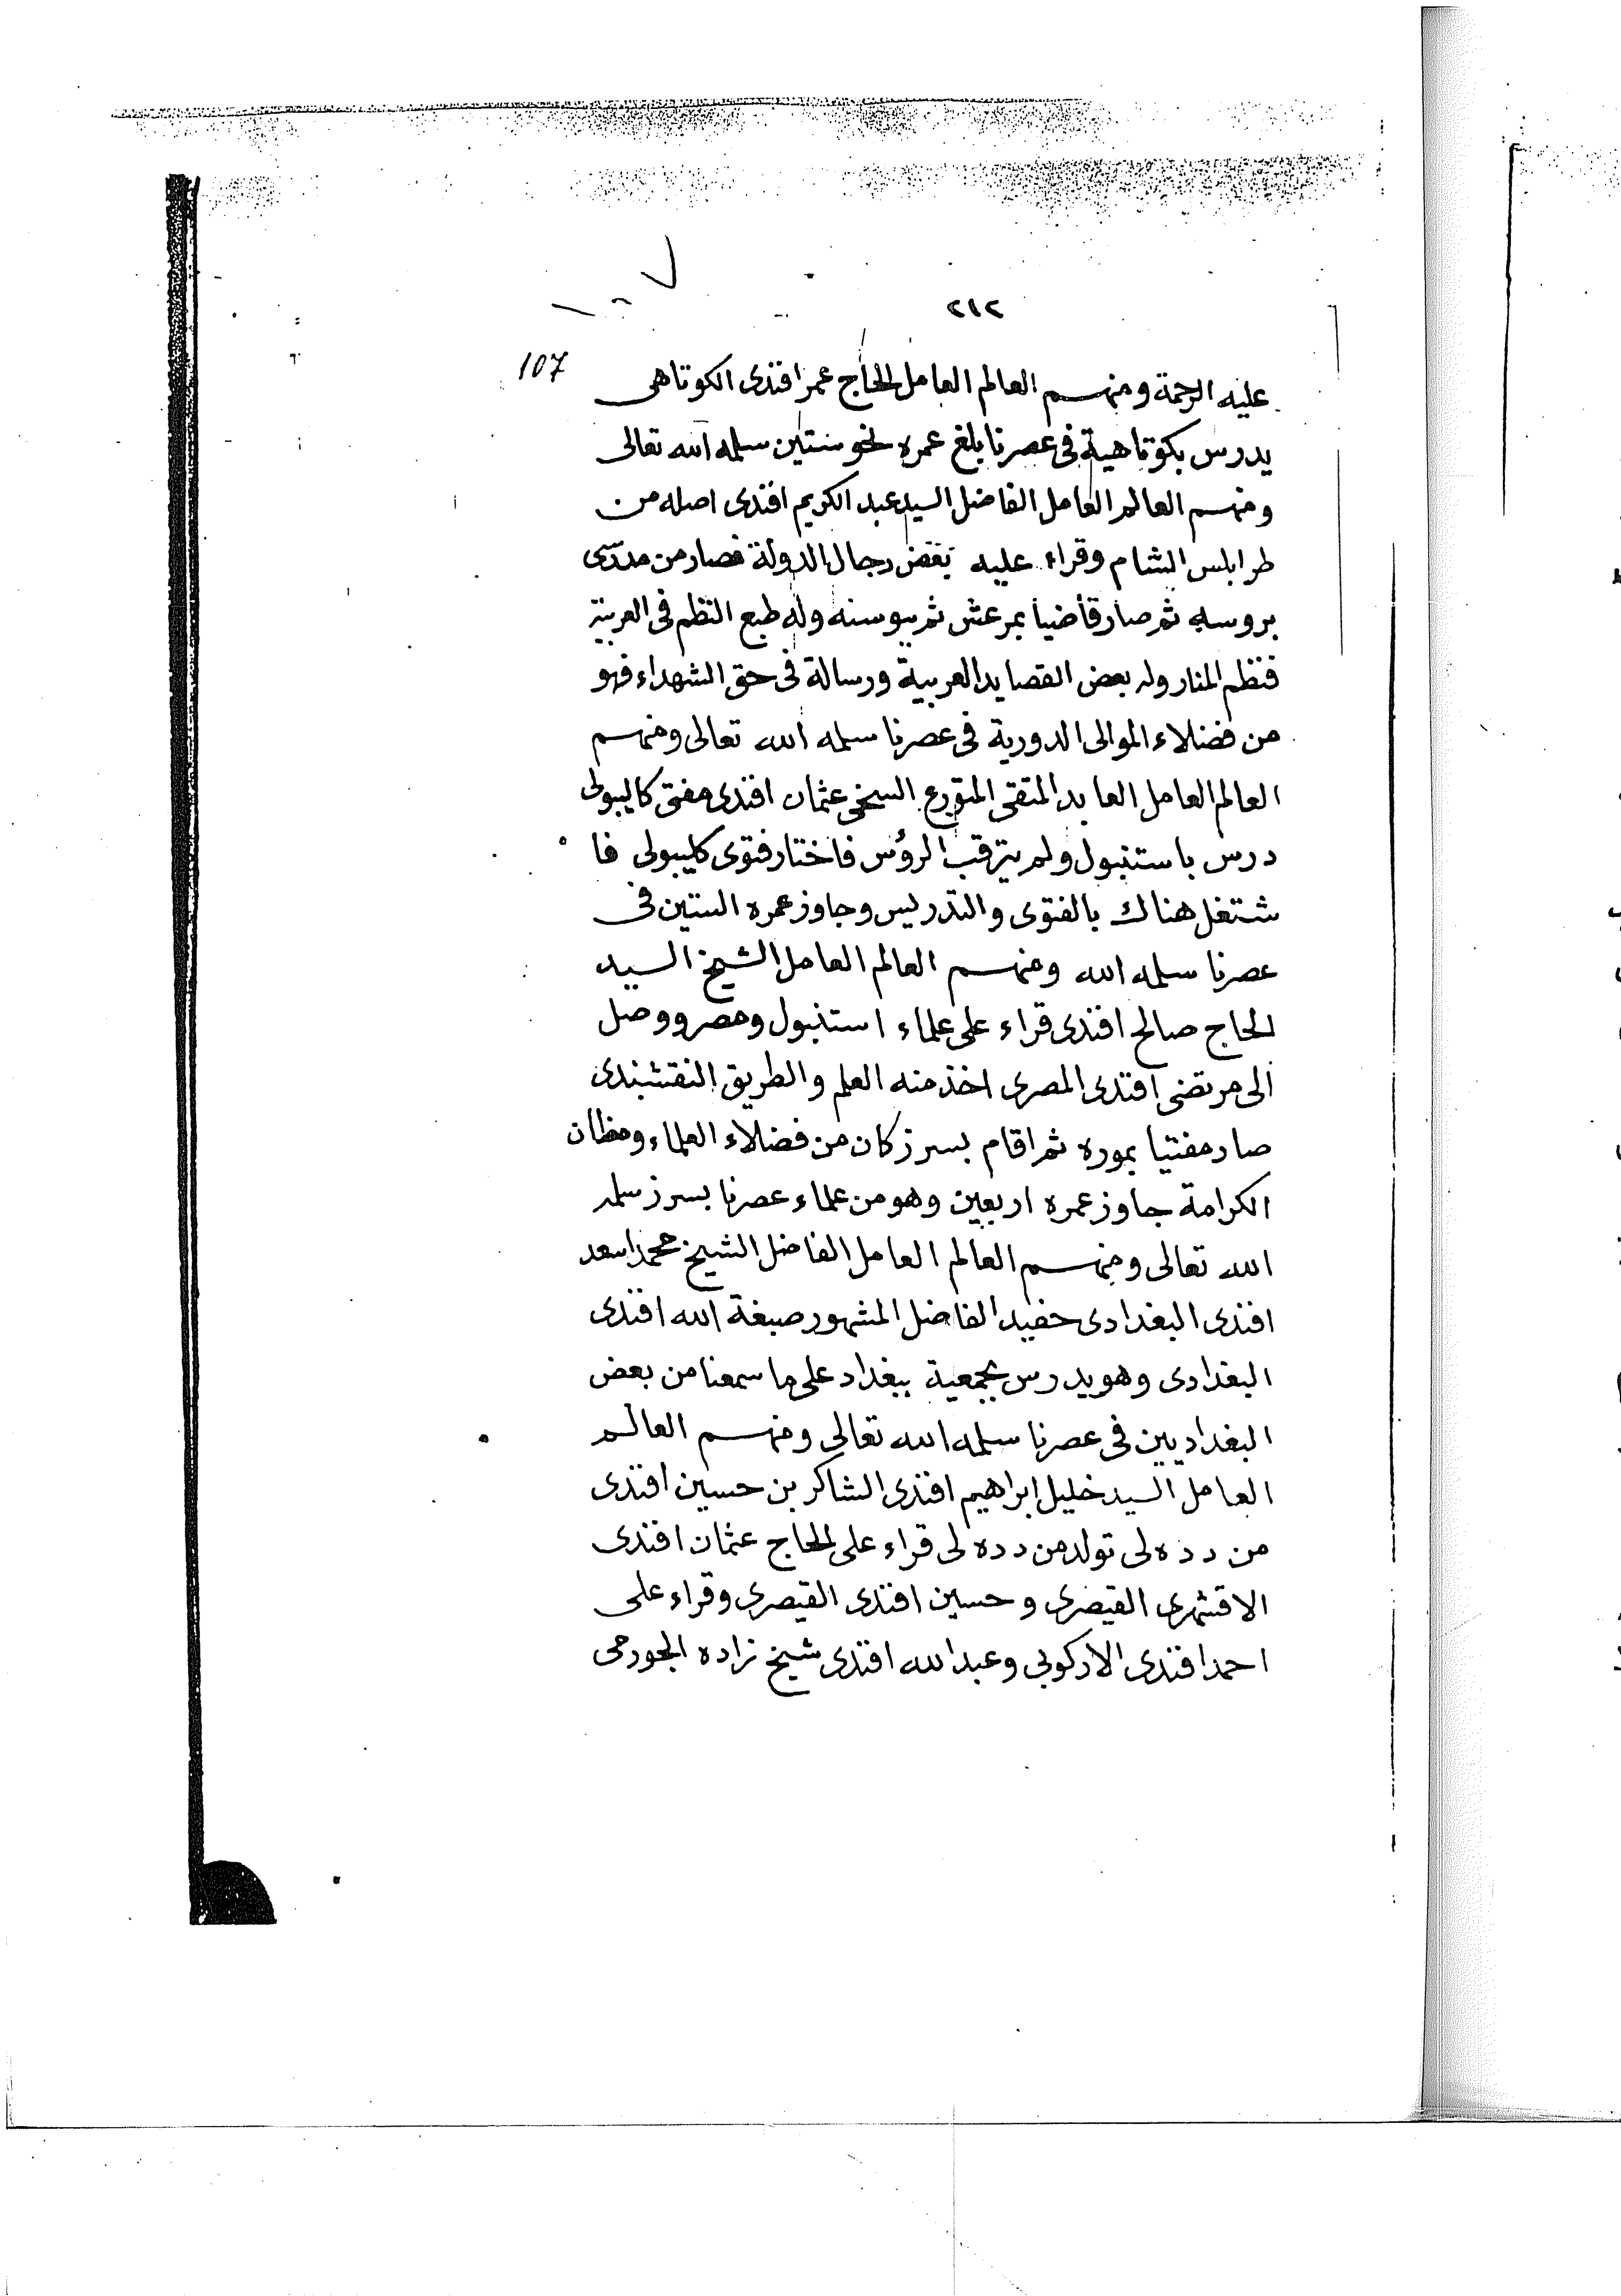 ٢١٢
107
عليه الرحمة ومنهم العالم العامل الحاج عمر افندى الكوتاهى
يدرس بكوتاهية فى عصرنا بلغ عمره نحو ستين سلمه الله تعالى
ومنهم العالم العامل الفاضل السيد عبد الكريم افندى اصله من
طرابلس الشام وقراء عليه بعض رجال الدولة فصار من مدرسى
بروسه ثم صار قاضيا بمرعش ثم ببوسنه وله طبع النظم فى العربية
فنظم المنار وله بعض القصايد العربية ورسالة فى حق الشهداء فهو
من فضلاء الموالى الدورية فى عصرنا سلمه الله تعالى ومنهم
العالم العامل العابد المتقى المتورع السخى عثمان افندى مفتى كاليبولى
درس باستنبول ولم يترقب الرؤس فاختار فتوى كليبولى فا
شتغل هناك بالفتوى والتدريس وجاوز عمره الستين فى
عصرنا سلمه الله ومنهم العالم العامل الشيخ السيد
الحاج صالح افندى قراء على علماء استنبول ومصر ووصل
الى مرتضى افندى المصرى اخذ منه العلم والطريق النقشبندى
صار مفتيا بموره ثم اقام بسرز كان من فضلاء العلماء ومظان
الكرامة جاوز عمره اربعين وهو من علماء عصرنا بسرز سلمه
الله تعالى ومنهم العالم العامل الفاضل الشيخ محمد اسعد
افندى البغدادى حفيد الفاضل المشهور صبغة الله افندى
البغدادى وهو يدرس بجمعية ببغداد على ما سمعنا من بعض
البغداديين فى عصرنا سلمه الله تعالى ومنهم العالم
العامل السيد خليل ابراهيم افندى الشاكر بن حسين افندى
من دده لى تولد من دده لى قراء على الحاج عثمان افندى
الاقشهرى القيصرى و حسين افندى القيصرى وقراء على
احمد افندى الاركوبى وعبد الله افندى شيخ زاده الجورمى